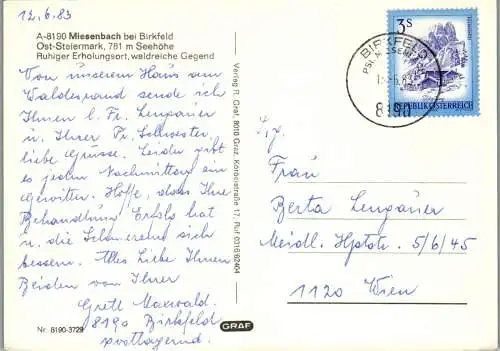 12.6.83
A-8190 Miesenbach bei Birkfeld
Ost-Steiermark, 781 m Seehöhe
Ruhiger Erholungsort, waldreiche Gegend
Von unserem Haus am
Waldesrand sende ich
Ihnen l. Fr. Lengauer
u. Ihrer Fr. Schwester,
liebe Grüsse. Leider gibt
es jeden Nachmittag ein
Gewitter. Hoffe, dass Ihre
Behandlung Erfolg hat
u. die Schmerzen sich
bessern. Alles Liebe Ihnen
Beiden von Ihrer
Gretl Maxwald.
8190 Birkfeld
postlagernd.
Nr. 8190-3729
Verlag R. Graf, 8010 Graz, Körösistraße 17, Ruf 0316/62404
GRAF
3 S
REPUBLIK ÖSTERREICH
BIRKFELD
8190
Frau
Berta Lengauer
Meidl. Hptstr. 5/6/45
1120 Wien